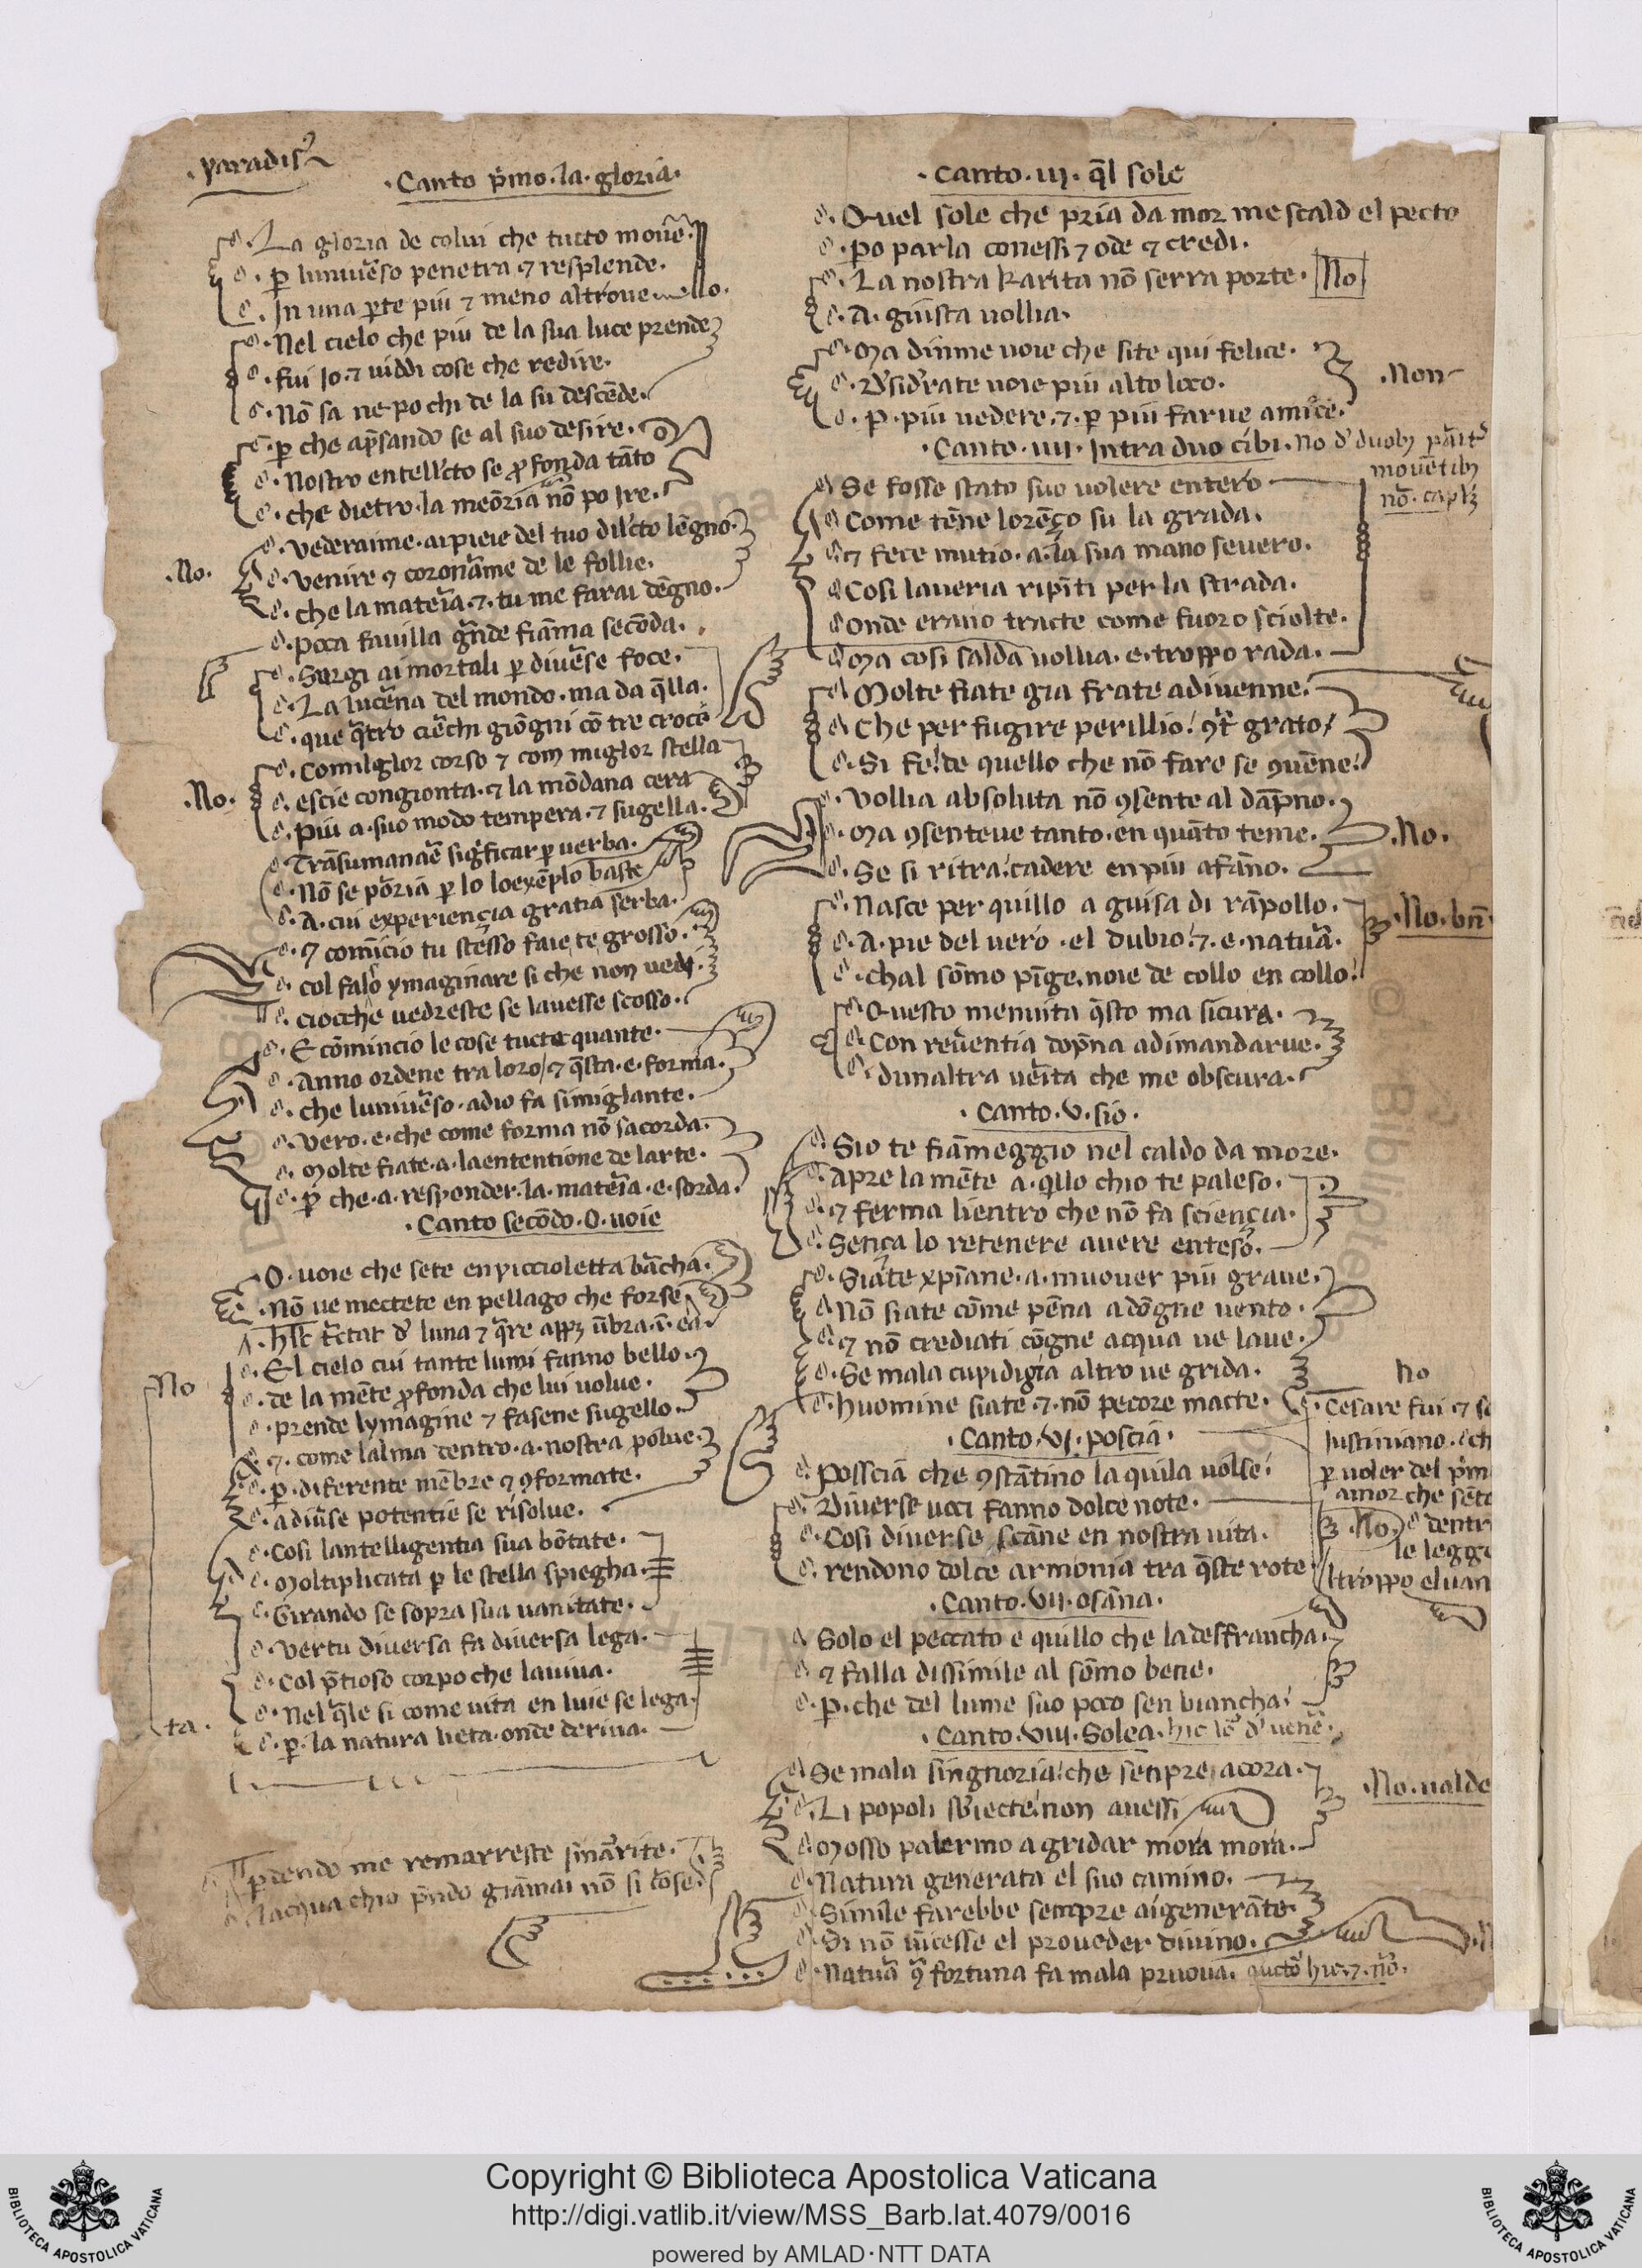 .paradis̉
.Canto p̄mo. la. gloria.
La gloria de colui che tutto moue.
p̱ luniūso penetra ⁊ resplende.
In una p̱te piu ⁊ meno altroue
Nel cielo che piu de la sua luce prende
fui Io. ⁊ uiddi cose che redire.
Nō sa ne po chi de la su descēde.
p̱ che ap̄sando se al suo desire.
Nostro entellecto se ꝓfonda tāto
che dietro. la meōria nō po Ire.
vederaime. ai pieie del tuo dilecto lēgno.
.No.
venire ⁊ coronarme de le follie.
che la materia. ⁊. tu me farai dēgno.
poca fauilla gr̄nde fiāma secōda.
Surgi ai mortali p̱ diuēse foce.
La lucēna del mondo. ma da q̄lla.
que q̄tro cierchi giōgni cō tre croce
Comilglor corso ⁊ com miglor stella
.No.
escie congionta. ⁊ la mōdana cera
piu a. suo modo tempera. ⁊ sugella.
Trāsumanare significar p̱ uerba.
Nō se poria p̱ lo loexēplo baste
A. cui experiença gratia serba.
⁊ comīcio tu stesso faie te grosso.
col falso ymaginare si che non uedi.
ciocche uedreste se lauesse scosso.
E cōmincio le cose tucte quante.
Anno ordene tra loro / ⁊ q̄sta. e. forma.
che luniuēso. adio fa simiglante.
vero. e. che come forma nō sacorda.
Molte fiate. a. laententione de larte.
p̱ che. a. responder. la. materia. e. sorda.
.Canto secōdo. O. uoie
O. uoie che sete en piccioletta barcha.
Nō ue mectete en pellago che forse
El cielo cui tante lumi fanno bello.
No
de la mēte ꝓfonda che lui uolue.
prende lymagine ⁊ fasene sugello.
⁊. come lalma dentro. a. nostra polue.
p̱. diferente mēbre ⁊ ꝯformate.
a diūse potentie se risolue.
Cosi lantelligentia sua bōtate.
Moltiplicata p̱ le stella spiegha.
Girando se sopra sua unitate.
vertu diuersa fa diuersa lega.
Col p̄tioso corpo che lauiua.
Nel q̄le si come uita en luie se lega.
ta.
p̱. la natura lieta. onde deriua.
pdendo me remarreste smarrite.
lacqua chio p̄ndo giāmai nō si corse.
.Canto. III. q̄l sole
Quel sole che pria da mor me scald el pecto
po parla conessi ⁊ ode ⁊ credi.
La nostra karita nō serra porte.
No
A. giusta uollia.
Ma dimme uoie che site qui felice.
desiderate uoie piu alto loco.
.Non
p̱. piu uedere. ⁊. p̱ piu farue amice.
.Canto. IIII. Intra duo cibi. No d̉ duob₃
mouētib₃
Se fosse stato suo uolere entero
Come tēne lorēço su la grada.
⁊ fece mutio. a. la sua mano seuero.
Cosi laueria ripīti per la strada.
Onde erano tracte come fuoro sciolte.
Ma cosi salda uollia. e. troppo rada.
Molte fiate gia frate adiuenne.
Che per fugire perillio / grato /
Si fe / de quello che nō fare se ꝯuēne.
vollia absoluta nō ꝯsente al dāpno.
Ma ꝯsenteue tanto. en quāto teme.
.No.
Se si ritra / cadere en piu afāno.
Nasce per quillo a guisa di rāpollo.
.No. bn̄.
A. pie del uero. el dubio / ⁊. e. natura.
chal sōmo pīge. noie de collo en collo.
Questo menuita q̄sto ma sicura.
Con reuerentia dopna adimandarue.
dunaltra uerita che me obscura.
.Canto. V. sio.
Sio te fiāmeggio nel caldo da more.
Apre la mēte a. q̄llo chio te paleso.
⁊ ferma lientro che nō fa sciença.
Sença lo retenere auere enteso.
Siate xpiane. a. muouer piu graue.
Nō siate cōme pēna adōgne uento.
⁊ nō crediati cōgne acqua ue laue.
Se mala cupidigia altro ue grida.
No
huomine siate. ⁊. nō pecore macte.
.Cesare fui ⁊
Iustiniano. ch
p̱ uoler del p̄m
amor che sent
.No. dentr
le legge
troppo el uan
.Canto. VI. poscia.
Posscia che ꝯstātino la quila uolse.
Diuerse uoci fanno dolce note.
Cosi diuerse scāne en nostra uita.
rendono dolce armonia tra q̄ste rote
.Canto. VII. osāna.
Solo el peccato e quillo che la desfrancha.
⁊ falla dissimile al sōmo bene.
p̱. che del lume suo poco sen biancha.
.Canto. VIII. Solea.
Se mala singnoria / che senpre acora.
.No. ualde
Li popoli subiecte / non auessi
Mosso palermo a gridar mora mora.
Natura generata el suo camino.
Simile farebbe sempre aigenerāte.
Si nō uīcesse el proueder diuino.
Natura fortuna fa mala pruoua.
Copyright © Biblioteca Apostolica Vaticana
http://digi.vatlib.it/view/MSS_Barb.lat.4079/0016
powered by AMLAD·NTT DATA
BIBLIOTECA APOSTOLICA VATICANA
BIBLIOTECA APOSTOLICA VATICANA